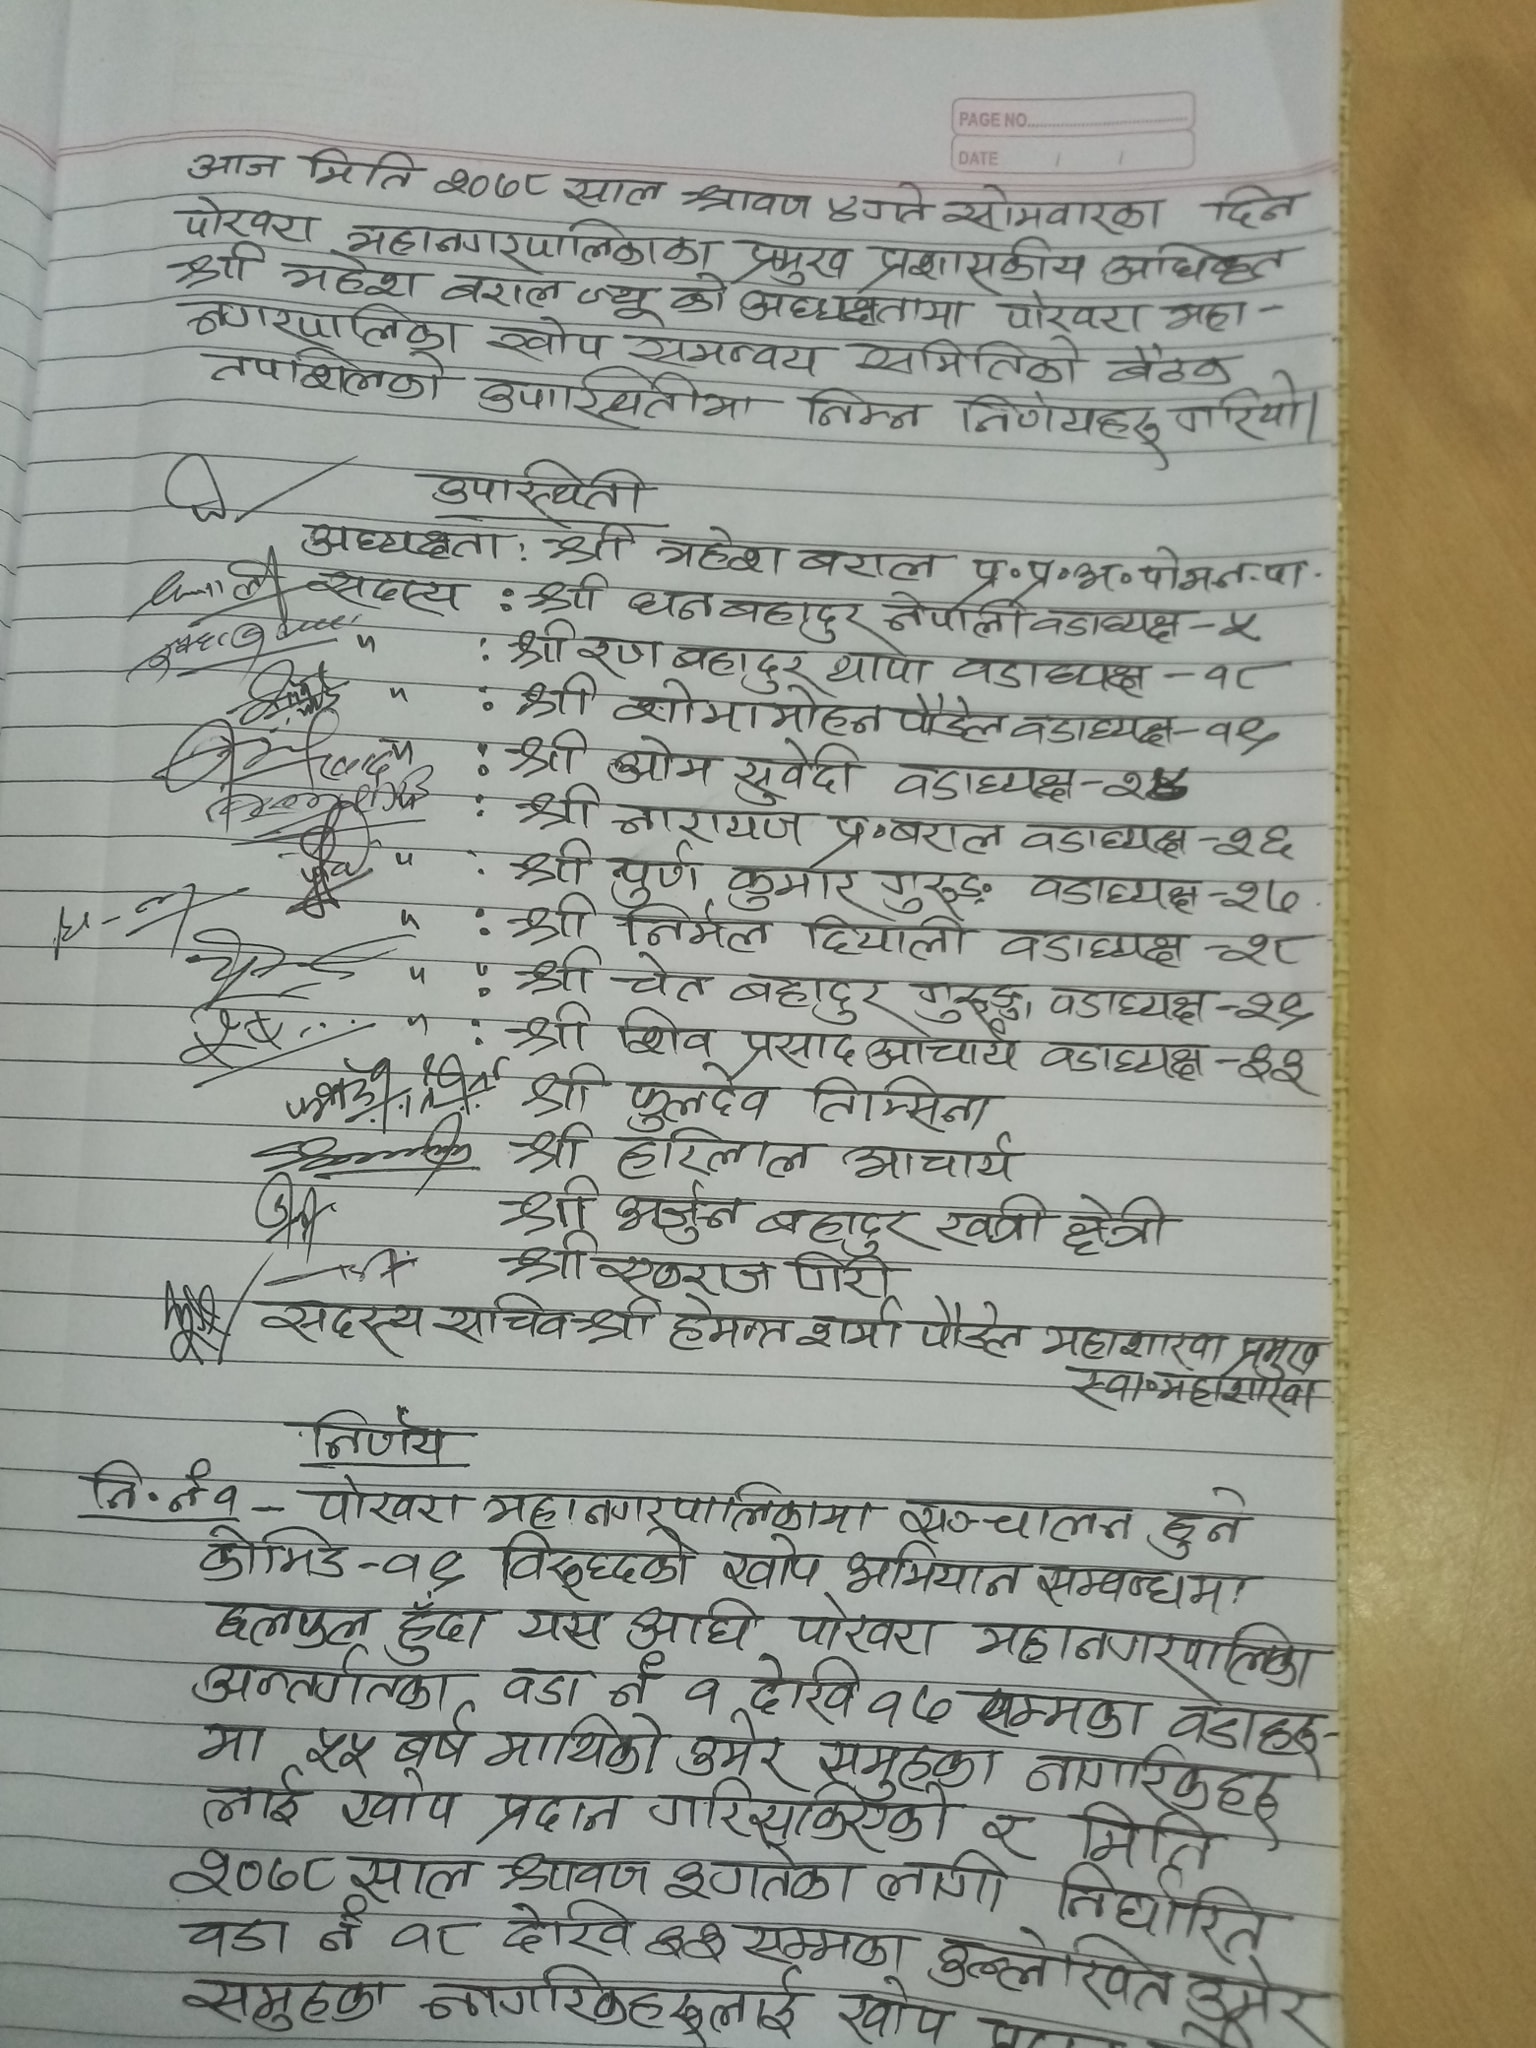 PAGE NO.
DATE / /
आज मिति २०७८ साल श्रावण ४गते सोमवारका दिन
पोखरा महानगरपालिकाका प्रमुख प्रशासकीय अधिकृत
श्री महेश बराल ज्यू को अध्यक्षतामा पोखरा महा-
नगरपालिका खोप समन्वय समितिको बैठक
तपशिलको उपास्थितीमा निम्न निर्णयहरु गरियो।
उपास्थिती
अध्यक्षता : श्री महेश बराल प्र.प्र.अ. पोमन.पा.
सदस्य : श्री धन बहादुर नेपाली वडाध्यक्ष-५
" : श्री रण बहादुर थापा वडाध्यक्ष-१८
" : श्री शोभामोहन पौडेल वडाध्यक्ष-१९
" : श्री ओम सुवेदी वडाध्यक्ष-
: श्री नारायण प्र. बराल वडाध्यक्ष-२६
" : श्री पुर्ण कुमार गुरुङ वडाध्यक्ष-२७
" : श्री निर्मल दियाली वडाध्यक्ष-२८
" : श्री चेत बहादुर गुरुङ वडाध्यक्ष-२९
" : श्री शिव प्रसाद आचार्य वडाध्यक्ष-३३
श्री फुलदेव तिम्सिना
श्री हरिलाल आचार्य
श्री अर्जुन बहादुर खत्री क्षेत्री
श्री राज गिरी
सदस्य सचिव श्री हेमन्त शर्मा पौडेल महाशाखा प्रमुख
स्वा. महाशाखा
निर्णय
नि. नं १ - पोखरा महानगरपालिकामा सञ्चालन हुने
कोभिड-१९ विरुद्धको खोप अभियान सम्बन्धमा
छलफल हुँदा यस अघि पोखरा महानगरपालिका
अन्तर्गतका वडा नं १ देखि १७ सम्मका वडाहरु-
मा ५५ बर्ष माथिको उमेर समुहका नागरिकहरु
लाई खोप प्रदान गरिसकिएको र मिति
२०७८ साल श्रावण ३गतेका लागी निर्धारित
वडा नं १८ देखि ३३ सम्मका उल्लेखित उमेर
समुहका नागरिकहरुलाई खोप